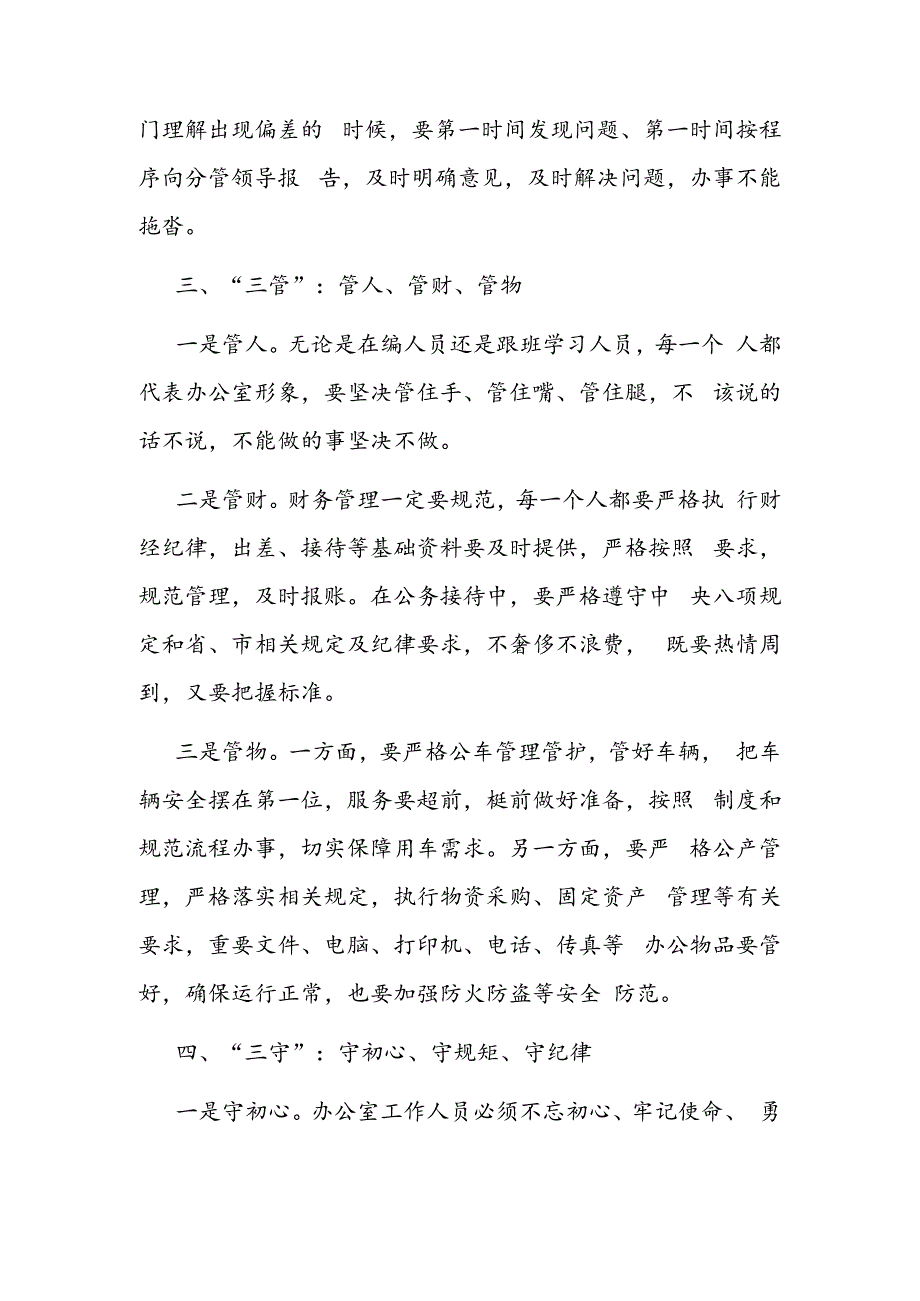 门理解出现偏差的 时候，要第一时间发现问题、第一时间按程
序向分管领导报 告，及时明确意见，及时解决问题，办事不能
拖沓。
三、“三管”：管人、管财、管物
一是管人。无论是在编人员还是跟班学习人员，每一个 人都
代表办公室形象，要坚决管住手、管住嘴、管住腿，不 该说的
话不说，不能做的事坚决不做。
二是管财。财务管理一定要规范，每一个人都要严格执 行财
经纪律，出差、接待等基础资料要及时提供，严格按照 要求，
规范管理，及时报账。在公务接待中，要严格遵守中 央八项规
定和省、市相关规定及纪律要求，不奢侈不浪费， 既要热情周
到，又要把握标准。
三是管物。一方面，要严格公车管理管护，管好车辆， 把车
辆安全摆在第一位，服务要超前，梃前做好准备，按照 制度和
规范流程办事，切实保障用车需求。另一方面，要严 格公产管
理，严格落实相关规定，执行物资采购、固定资产 管理等有关
要求，重要文件、电脑、打印机、电话、传真等 办公物品要管
好，确保运行正常，也要加强防火防盗等安全 防范。
四、“三守”：守初心、守规矩、守纪律
一是守初心。办公室工作人员必须不忘初心、牢记使命、 勇